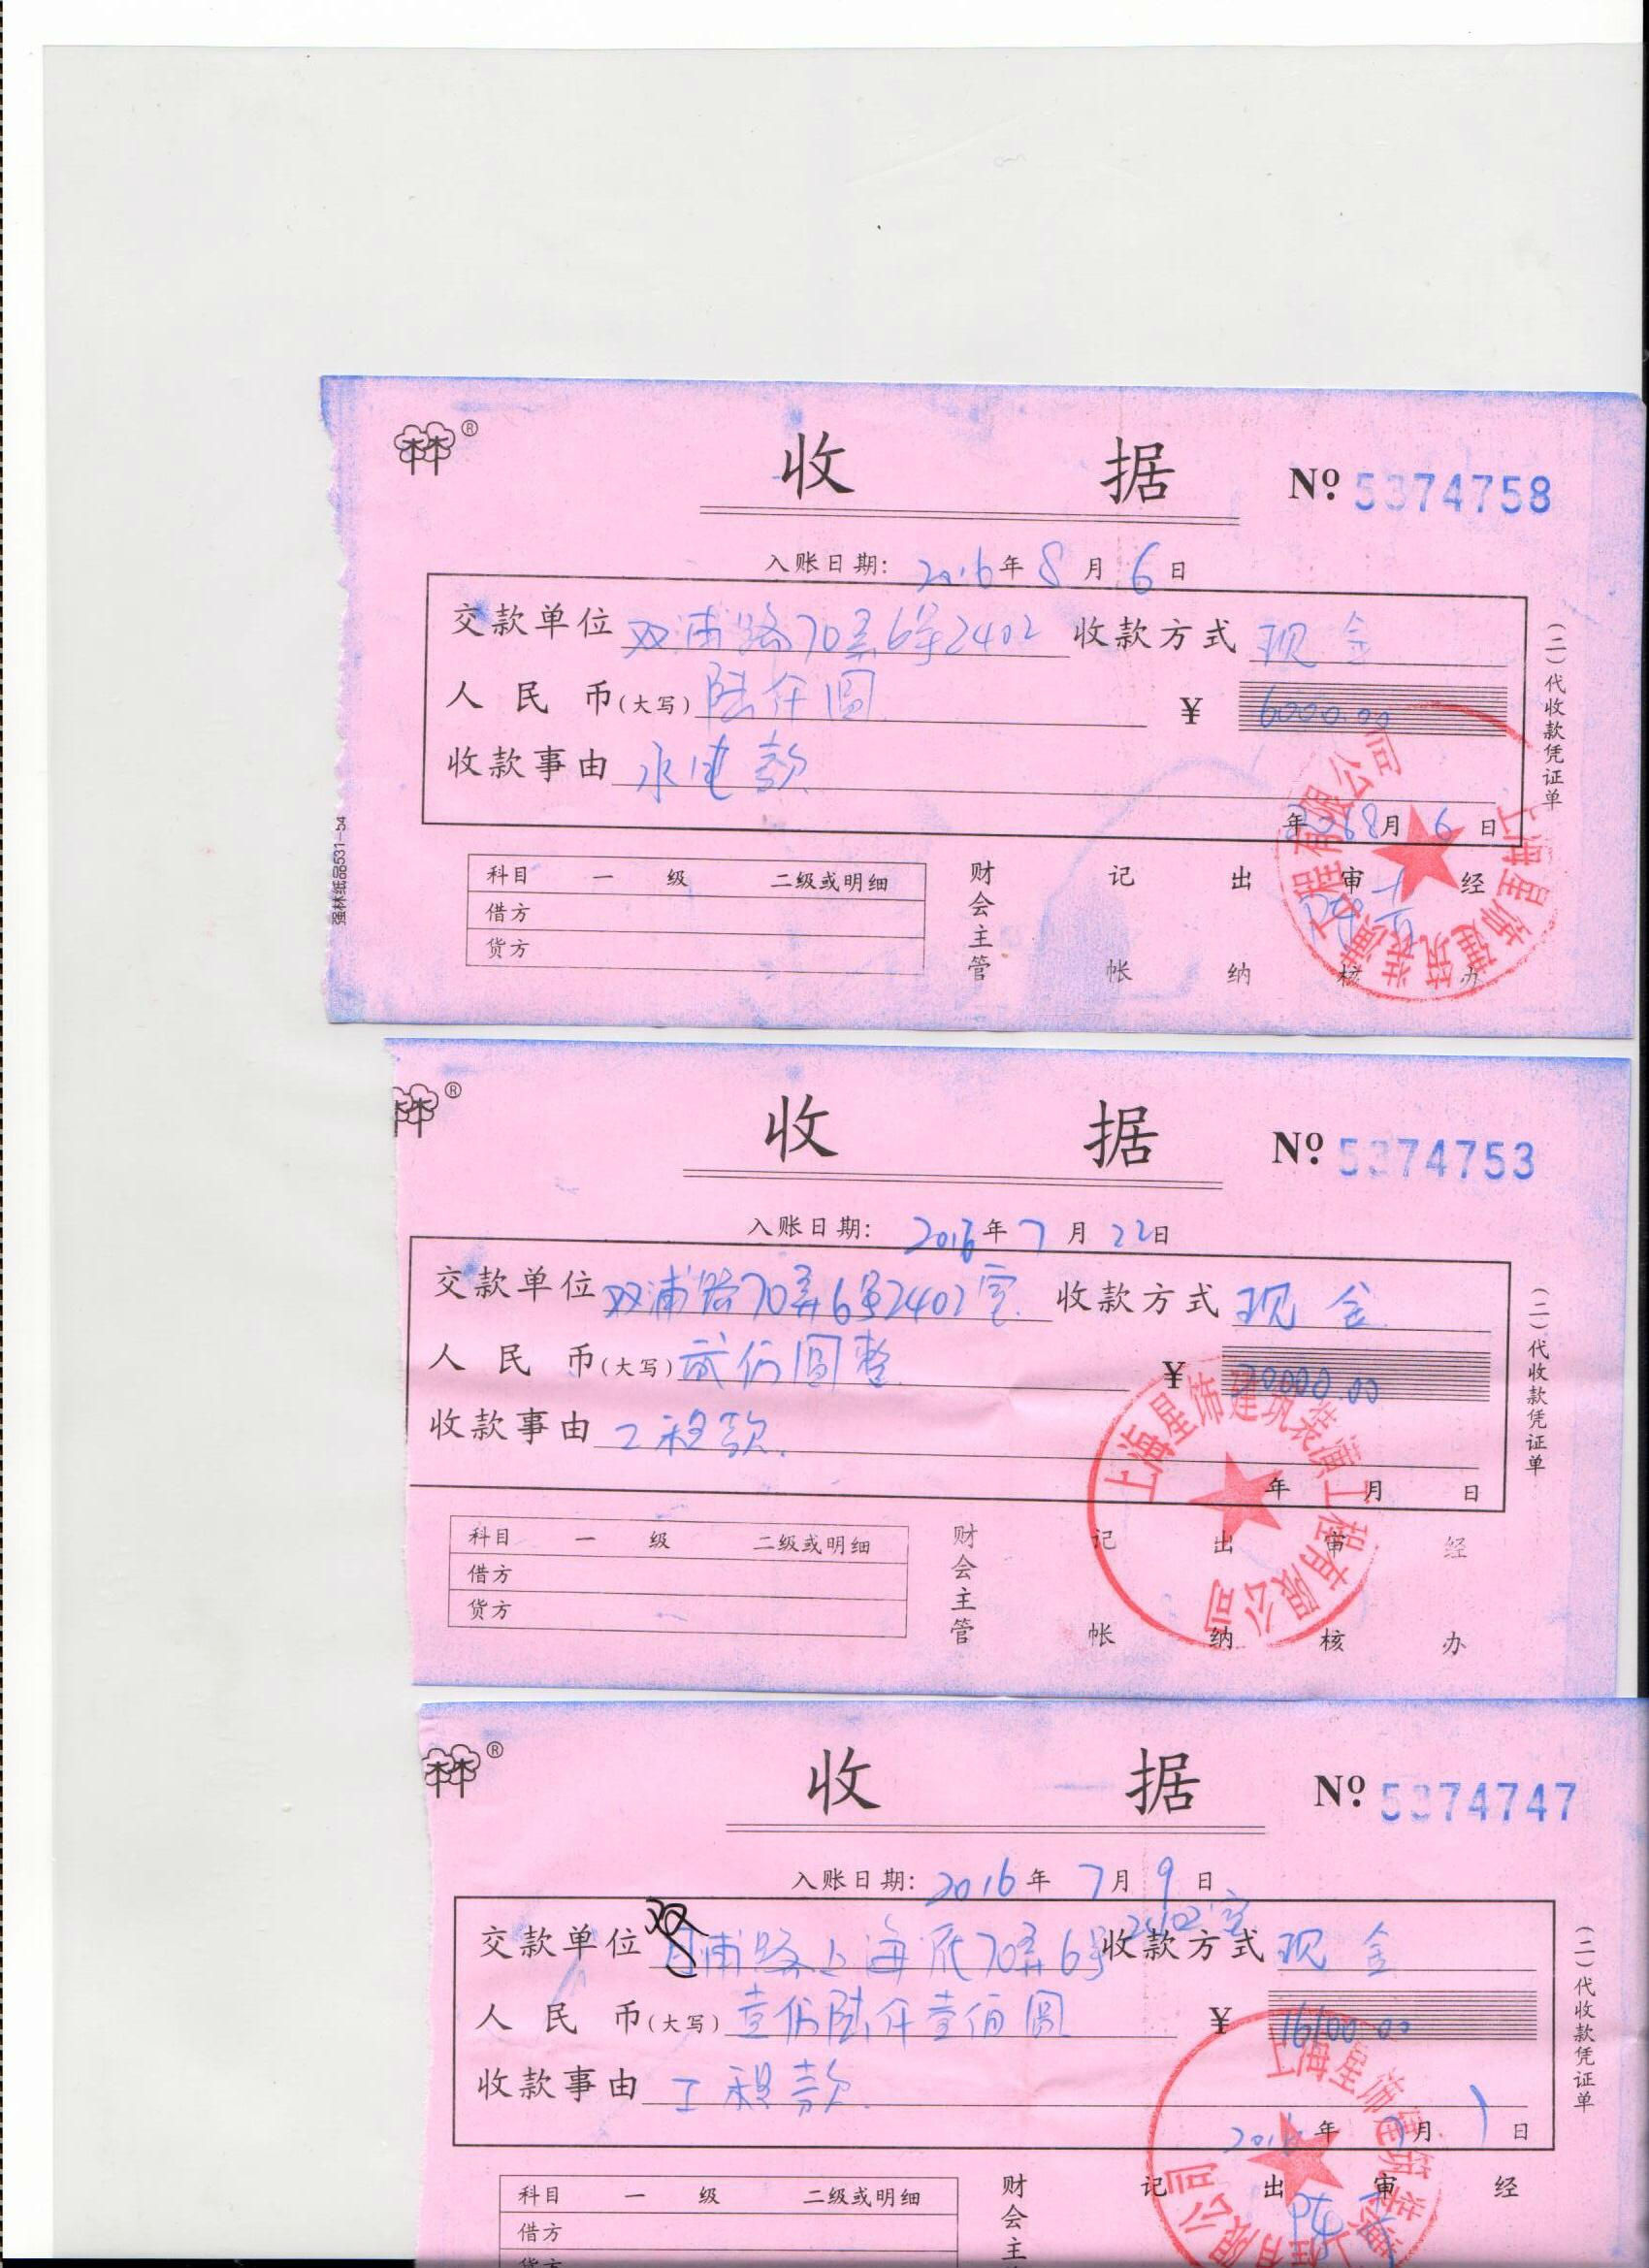 收 据 Nº 5374758
入账日期: 2016年8月6日
交款单位 双浦路70弄6号2402 收款方式 现金
人民币(大写) 陆仟圆 ¥ 6000.00
收款事由 水电款
年 8月6日
科目 一级 二级或明细
借方
货方
财会主管 记帐 出纳 审核 经办
(二)代收款凭证单
强林纸品531-54
上海星饰建筑装潢工程有限公司
收 据 Nº 5374753
入账日期: 2016年7月22日
交款单位 双浦路70弄6号2402室 收款方式 现金
人民币(大写) 贰万圆整 ¥ 20000.00
收款事由 工程款.
年 月 日
科目 一级 二级或明细
借方
货方
财会主管 记帐 出纳 审核 经办
(二)代收款凭证单
上海星饰建筑装潢工程有限公司
收 据 Nº 5374747
入账日期: 2016年7月9日
2402室
交款单位 双浦路上海底70弄6号 收款方式 现金
人民币(大写) 壹万陆仟壹佰圆 ¥ 16100.00
收款事由 工程款.
2016年 月 日
科目 一级 二级或明细
借方
货方
财会主 记 出 审 经
(二)代收款凭证单
上海星饰建筑装潢工程有限公司